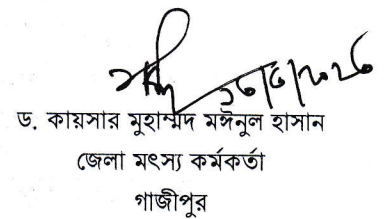 ড. কায়সার মুহাম্মদ মঈনুল হাসান
জেলা মৎস্য কর্মকর্তা
গাজীপুর